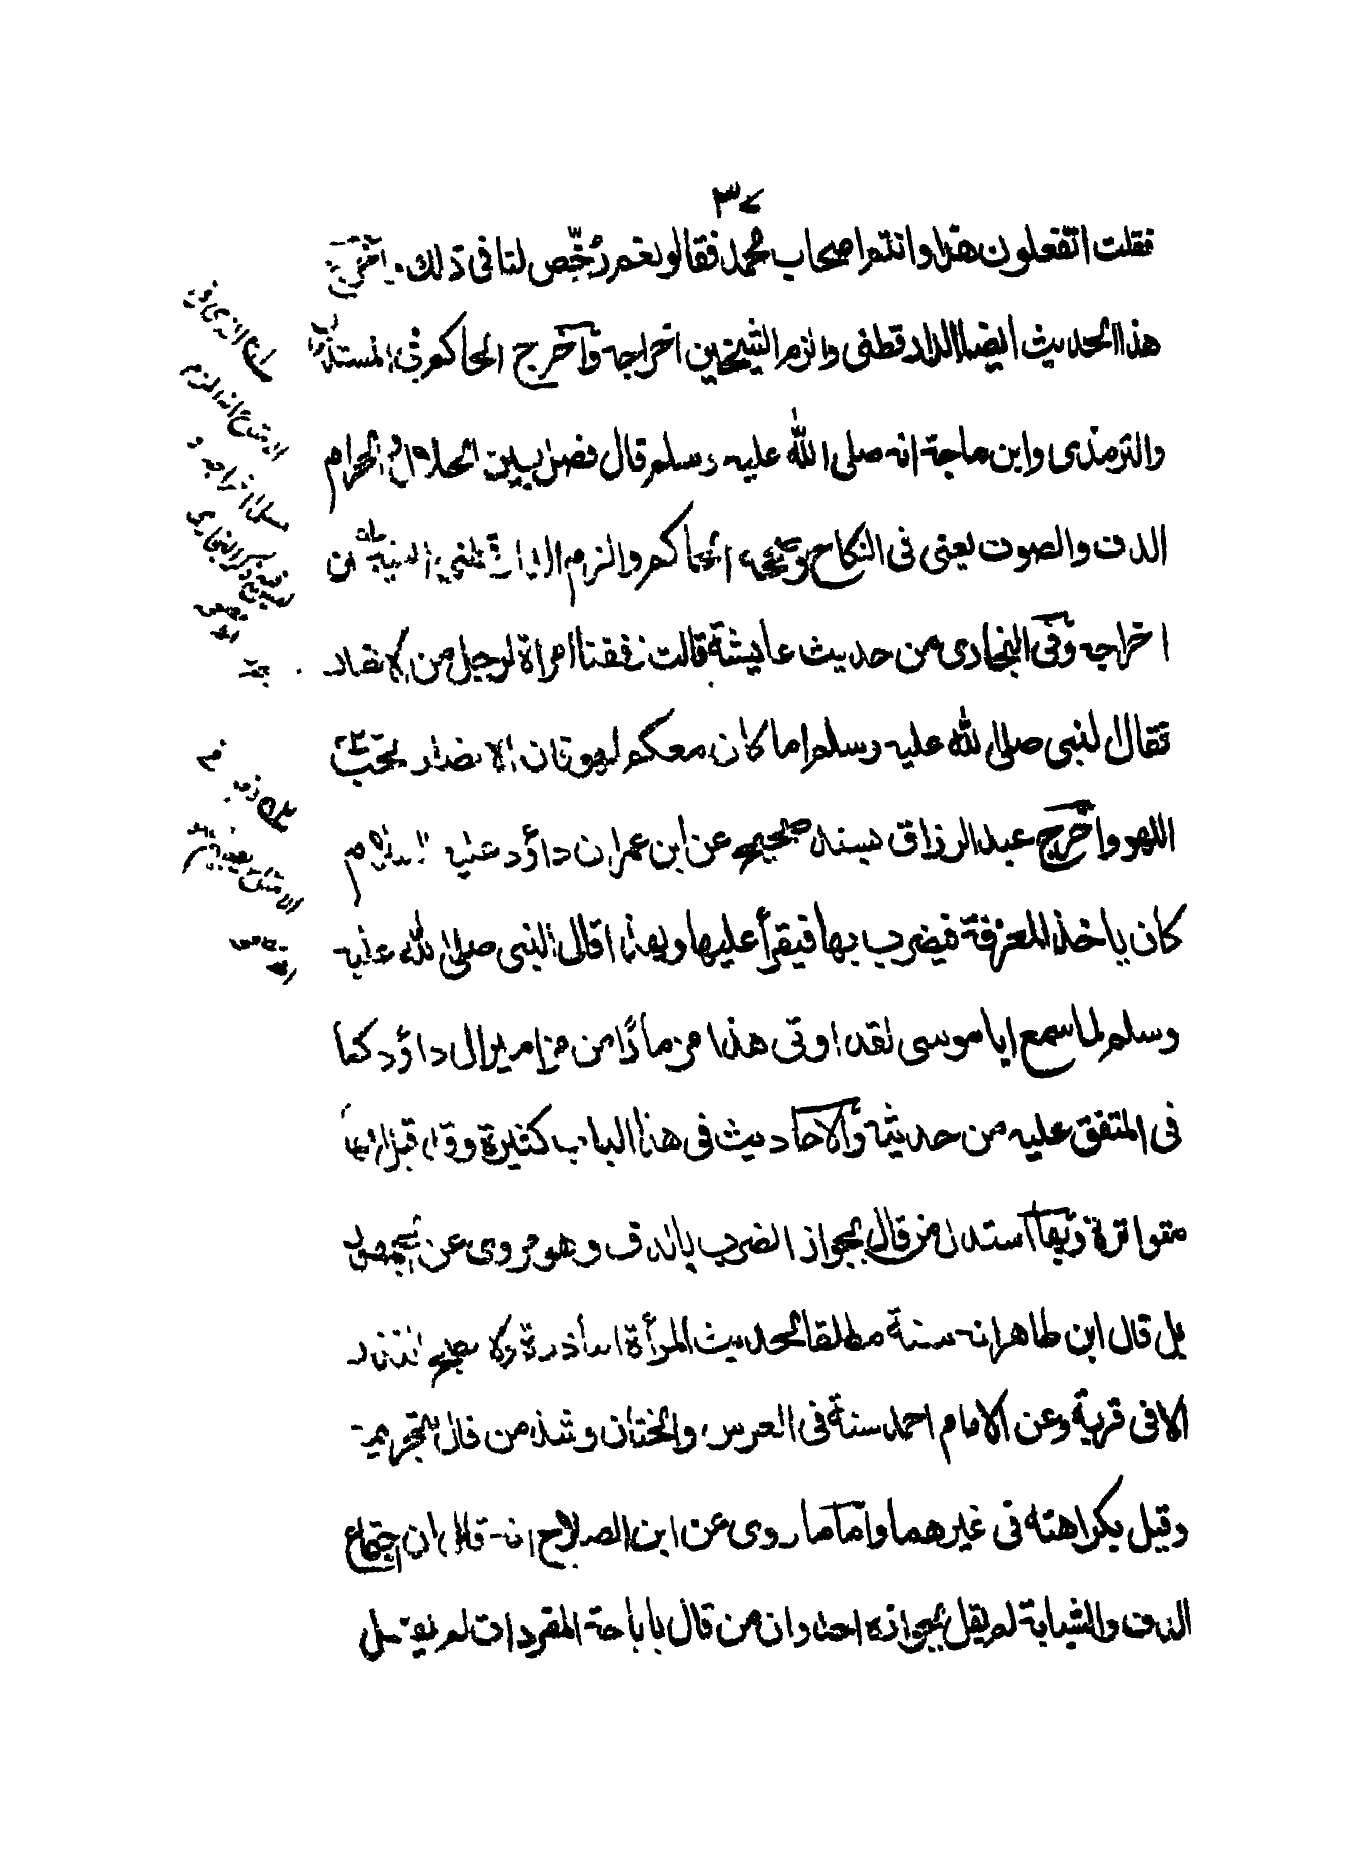 ٣٧
فقلت اتفعلون هذا وانتم اصحاب محمد فقالو نعم رُخِّص لنا فى ذلك. اخرج
هذا الحديث ايضا الدارقطنى والزم الشيخين اخراجه وآخرج الحاكم فى المستدرك
والترمذى وابن ماجة انه صلى الله عليه وسلم قال فصل بين الحلال والحرام
الدف والصوت يعنى فى النكاح وصححه الحاكم والزم الدارقطنى الشيخين
اخراجه وفى البخارى من حديث عايشة قالت زففنا امراة لرجل من الانصار
فقال النبى صلى الله عليه وسلم اما كان معكم لهو فان الانصار يحب
اللهو واخرج عبد الرزاق بسند صحيح عن ابن عمر ان داؤد عليه السلام
كان ياخذ المعزفة فيضرب بها فيقرأ عليها ولهذا قال النبى صلى الله عليه
وسلم لما سمع ابا موسى لقد اوتى هذا مزمارًا من مزامير ال داؤد كما
فى المتفق عليه من حديثه والاحاديث فى هذا الباب كثيرة وقد قيل انها
متواترة وبها استدل من قال بجواز الضرب بالدف وهو مروى عن الجمهور
بل قال ابن طاهر انه سنة مطلقا لحديث المرأة الناذرة ولا يصح النذر
الا فى قربة وعن الامام احمد سنة فى العرس والختان وشذ من قال بتحريمه
وقيل بكراهته فى غيرهما واما ما روى عن ابن الصلاح انه قال ان اجتماع
الدف والشبابة لم يقل بجوازه احد وان من قال باباحة المفردات لم يقل